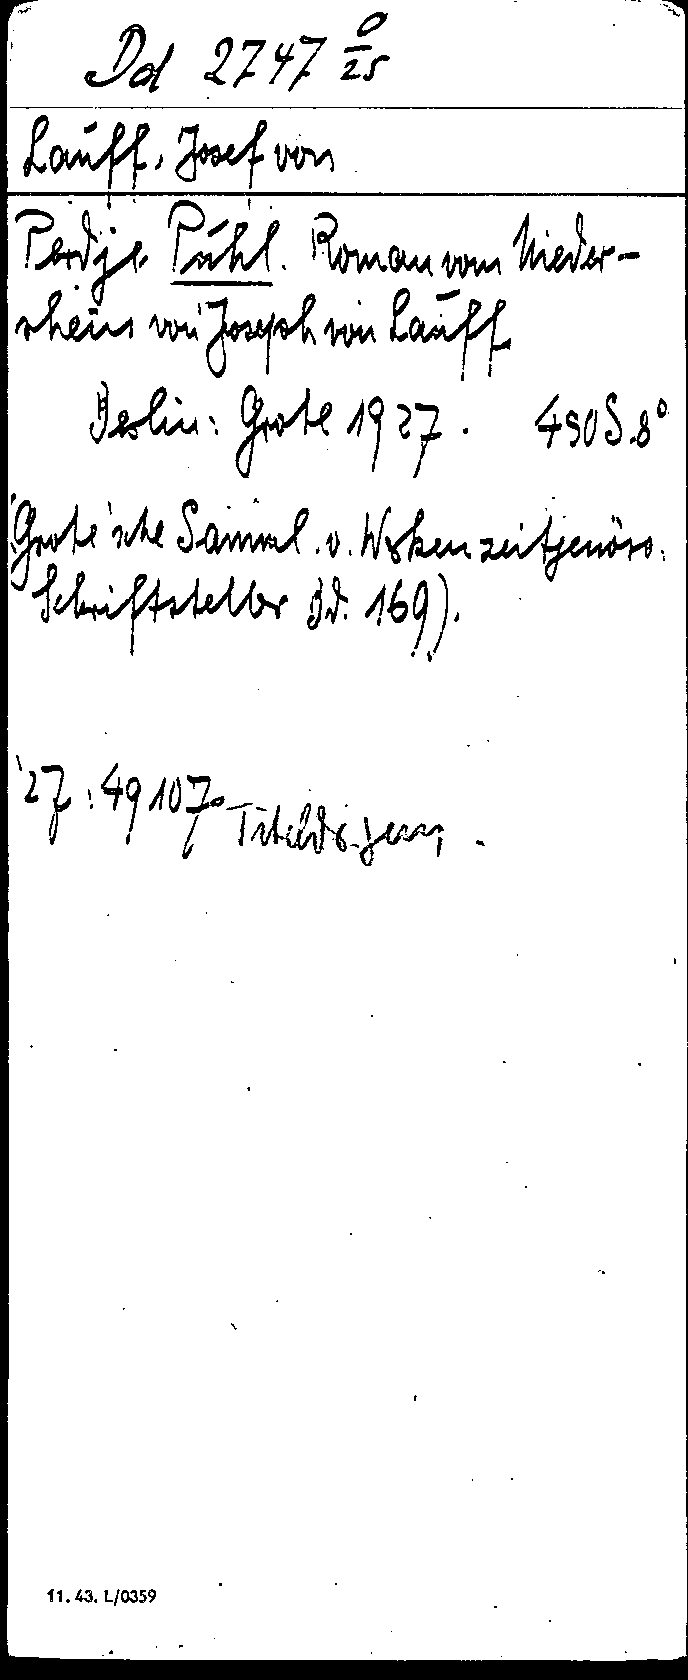 Dd 2747 0/25
Lauff, Josef von
Perdje Puhl. Roman vom Nieder-
rhein von Joseph von Lauff
Berlin: Grote 1927. 480 S. 8°
(Grote'sche Samml. v. Werken zeitgenöss.
Schriftsteller Bd. 169).
27:49107.
11.43. L/0359